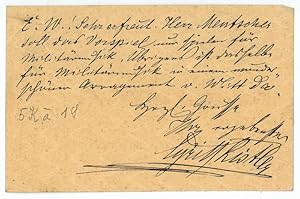 E. W. Sehr erfreut. Herr Mentschel
soll das Vorspiel nur spielen für
Militärmusik. Übrigens ist dasselbe
für Militärmusik in einem wunder
schönen Arrangement v. Witt da.
Herzl. Grüsse
Ihr ergebenster
Cyrill Kistler